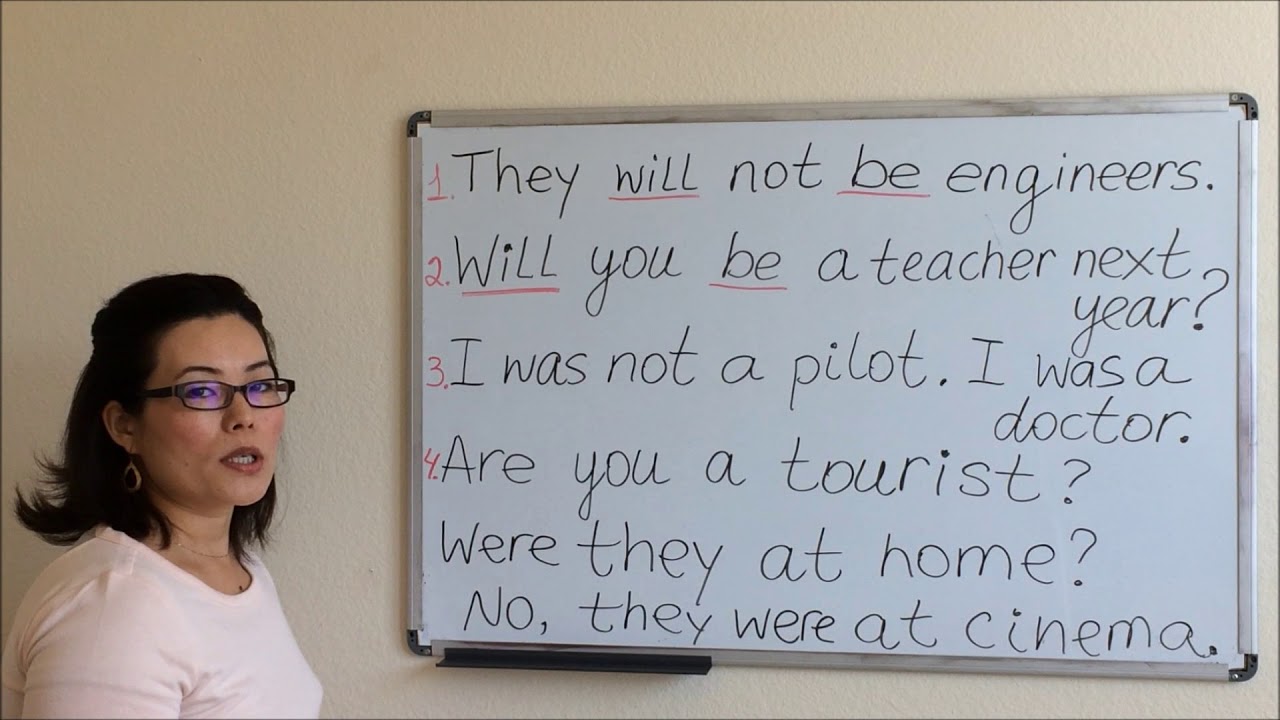 1. They will not be engineers.
2. Will you be a teacher next
year?
3. I was not a pilot. I was a
doctor.
4. Are you a tourist?
Were they at home?
No, they were at cinema.